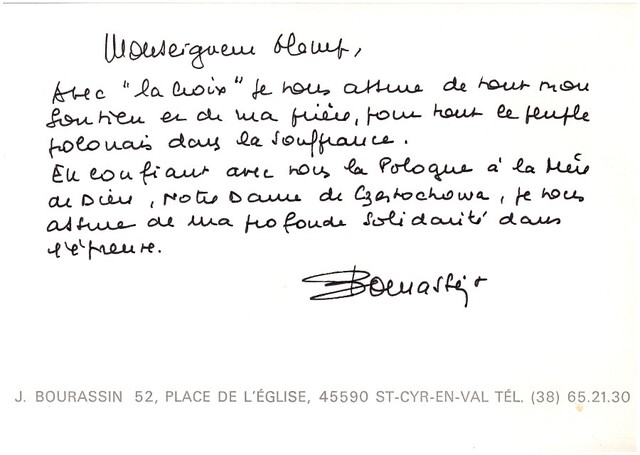 Monseigneur Glemp,
Avec "la Croix" je vous assure de tout mon
soutien et de ma prière, pour tout le peuple
polonais dans la souffrance.
En confiant avec vous la Pologne à la Mère
de Dieu, Notre Dame de Częstochowa, je vous
assure de ma profonde solidarité dans
l'épreuve.
Bourassin
J. BOURASSIN 52, PLACE DE L'ÉGLISE, 45590 ST-CYR-EN-VAL TÉL. (38) 65.21.30